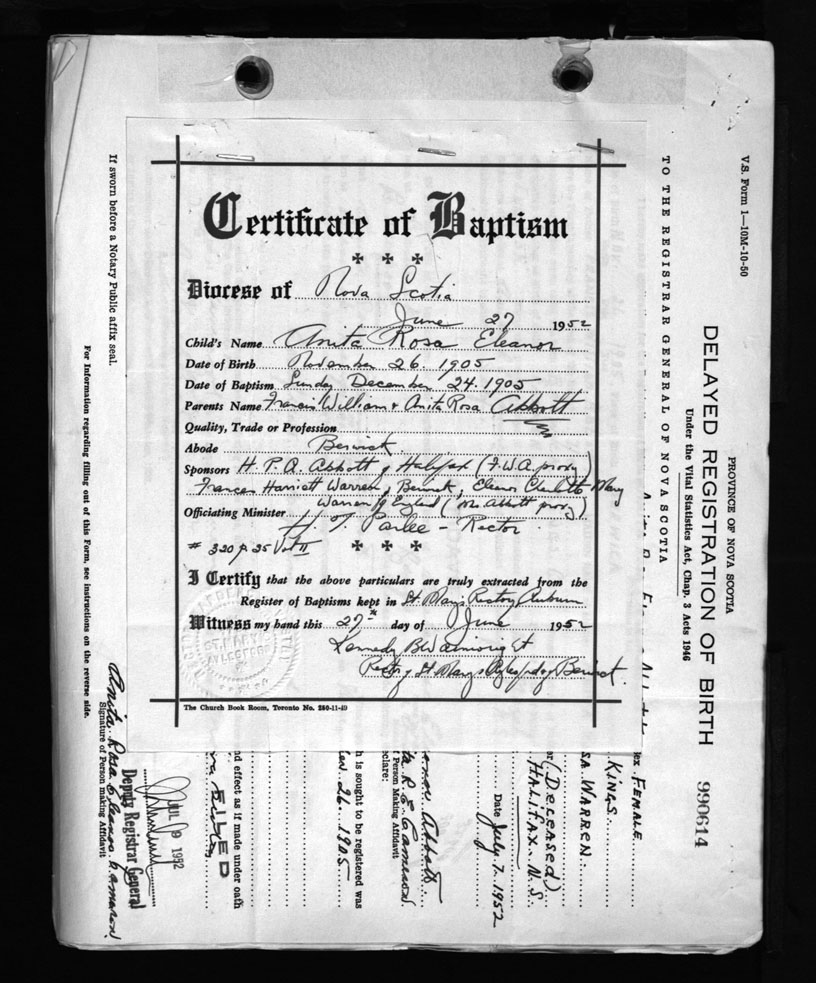 Certificate of Baptism
Diocese of Nova Scotia
June 27 1952
Child's Name Anita Rosa Eleanor
Date of Birth November 26. 1905
Date of Baptism Sunday December 24. 1905
Parents Name Francis William & Anita Rosa Abbott
Quality, Trade or Profession
Abode Berwick
Sponsors H. P. A. Abbott of Halifax (F.W.A. proxy)
Frances Harriett Warren, Berwick, Eleanor Charlotte Mary
Warren of England ( Abbott proxy)
Officiating Minister H. T. Parlee - Rector
# 320 p. 35 Vol II
I Certify that the above particulars are truly extracted from the
Register of Baptisms kept in St. Mary's Rectory Auburn
Witness my hand this 27th day of June 1952
Kennedy B. Wainwright
Rector of St Mary's Aylesford Berwick
The Church Book Room, Toronto No. 250-11-49
V.S. Form 1—10M-10-50
PROVINCE OF NOVA SCOTIA
DELAYED REGISTRATION OF BIRTH 990614
Under the Vital Statistics Act, Chap. 3 Acts 1946
TO THE REGISTRAR GENERAL OF NOVA SCOTIA
ex FEMALE
KINGS
SA WARREN
or (DeceaseD)
HALIFAX. N.S.
Date July 7. 1952
Abbott
ta R. E. Cameron.
f Person Making Affidavit
clare:
h is sought to be registered was
26. 1905
nd effect as if made under oath
FILED
JUL 9 1952
Deputy Registrar General
Anita Rosa Eleanor Cameron.
Signature of Person making Affidavit
For Information regarding filling out of this Form, see instructions on the reverse side.
If sworn before a Notary Public affix seal.